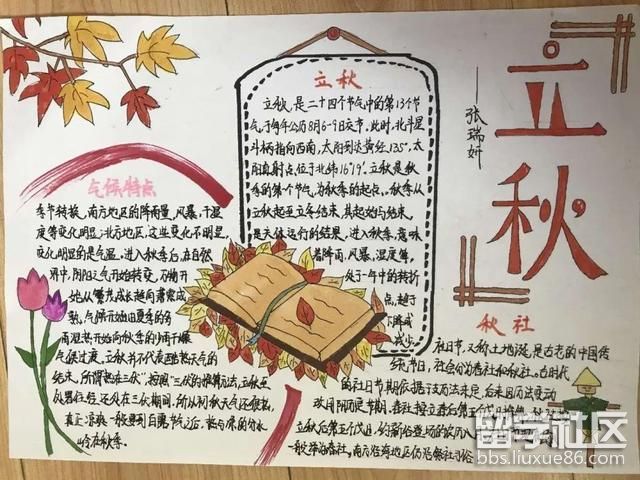 立秋
——张瑞妍
立秋
立秋,是二十四个节气中的第13个节
气,于每年公历8月6-9日交节。此时,北斗星
斗柄指向西南,太阳到达黄经135°,太
阳直射点位于北纬16°19′。立秋是秋
季的第一个节气,为秋季的起点。秋季从
立秋起至立冬结束,其起始与结束,
是天体运行的结果。进入秋季,意味
着降雨、风暴、湿度等,
处于一年中的转折
点,趋于
下降或
减少。
气候特点
季节转换,南方地区的降雨量,风暴,干湿
度等变化明显;北方地区,这些变化不明显,
变化明显的是气温。进入秋季后,在自然
界中,阴阳之气开始转变,万物开
始从繁茂成长趋向萧索成
熟,气候开始由夏季的多
雨湿热开始向秋季的少雨干燥
气候过度,立秋并不代表酷热天气的
结束,所谓“热在三伏”按照“三伏”的推算方法,立秋至
处暑往往还处在三伏期间,所以初秋天气还很热,
真正凉爽一般要到白露节气之后,热与凉的分水
岭在秋季。
秋社
社日节,又称土地诞,是古老的中国传
统节日,社会分为春社和秋社。古时代
的社日节期依据干支历法来定,后来因历法变动
改用阴历定节期。春社按立春后第五个戊日推算,
立秋后第五个戊日,约新谷登场的农历八月
一般举办春社,南方沿海地区仍沿袭社习俗
留学社区
bbs.liuxue86.com